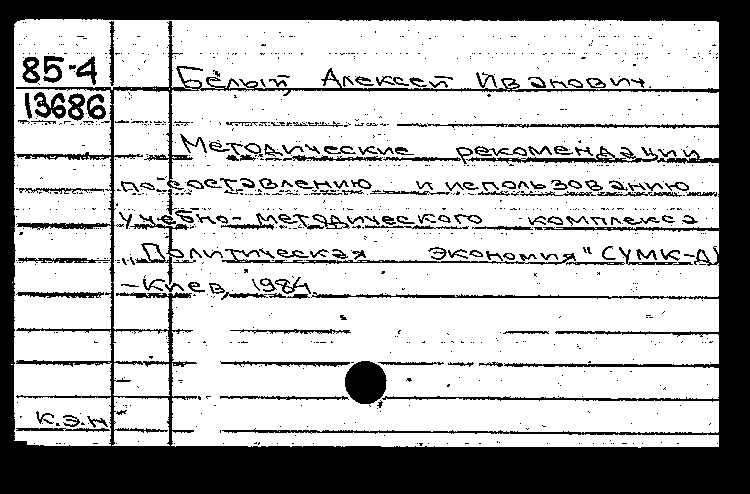 85-4 Белый, Алексей Иванович
13686
Методические рекомендации
по составлению и использованию
учебно-методического комплекса
„Политическая экономия" (УМК-Д)
-Киев, 1984
к.э.н